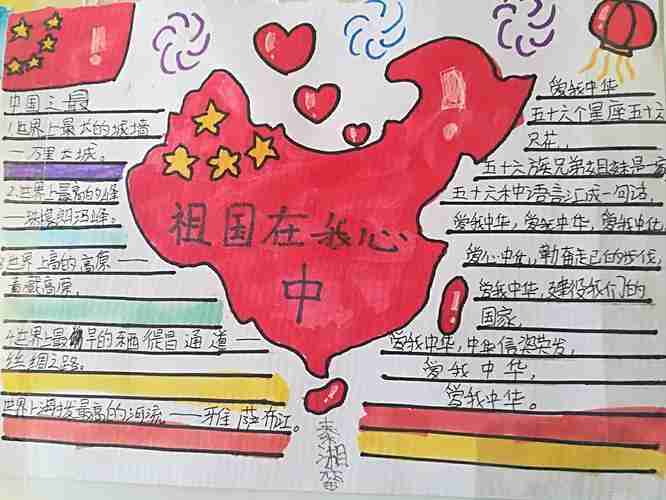 中国之最
1.世界上最大的城墙
—万里长城。
2.世界上最高的山峰
—珠穆朗玛峰。
3.世界上高的高原——
青藏高原。
4.世界上最早的东西
通道——
丝绸之路。
世界上海拔最高的河流。——雅
布江。
祖国在我心
中
爱我中华
五十六个星座五十六
只花,
五十六族兄弟姐妹是一家
五十六种语言汇成一句话,
爱我中华,爱我中华,爱我中华
爱我中华,
的步伐,
爱我中华,建设我们的
国家,
爱我中华,中华
发,
爱我中华,
爱我中华。
秦湘